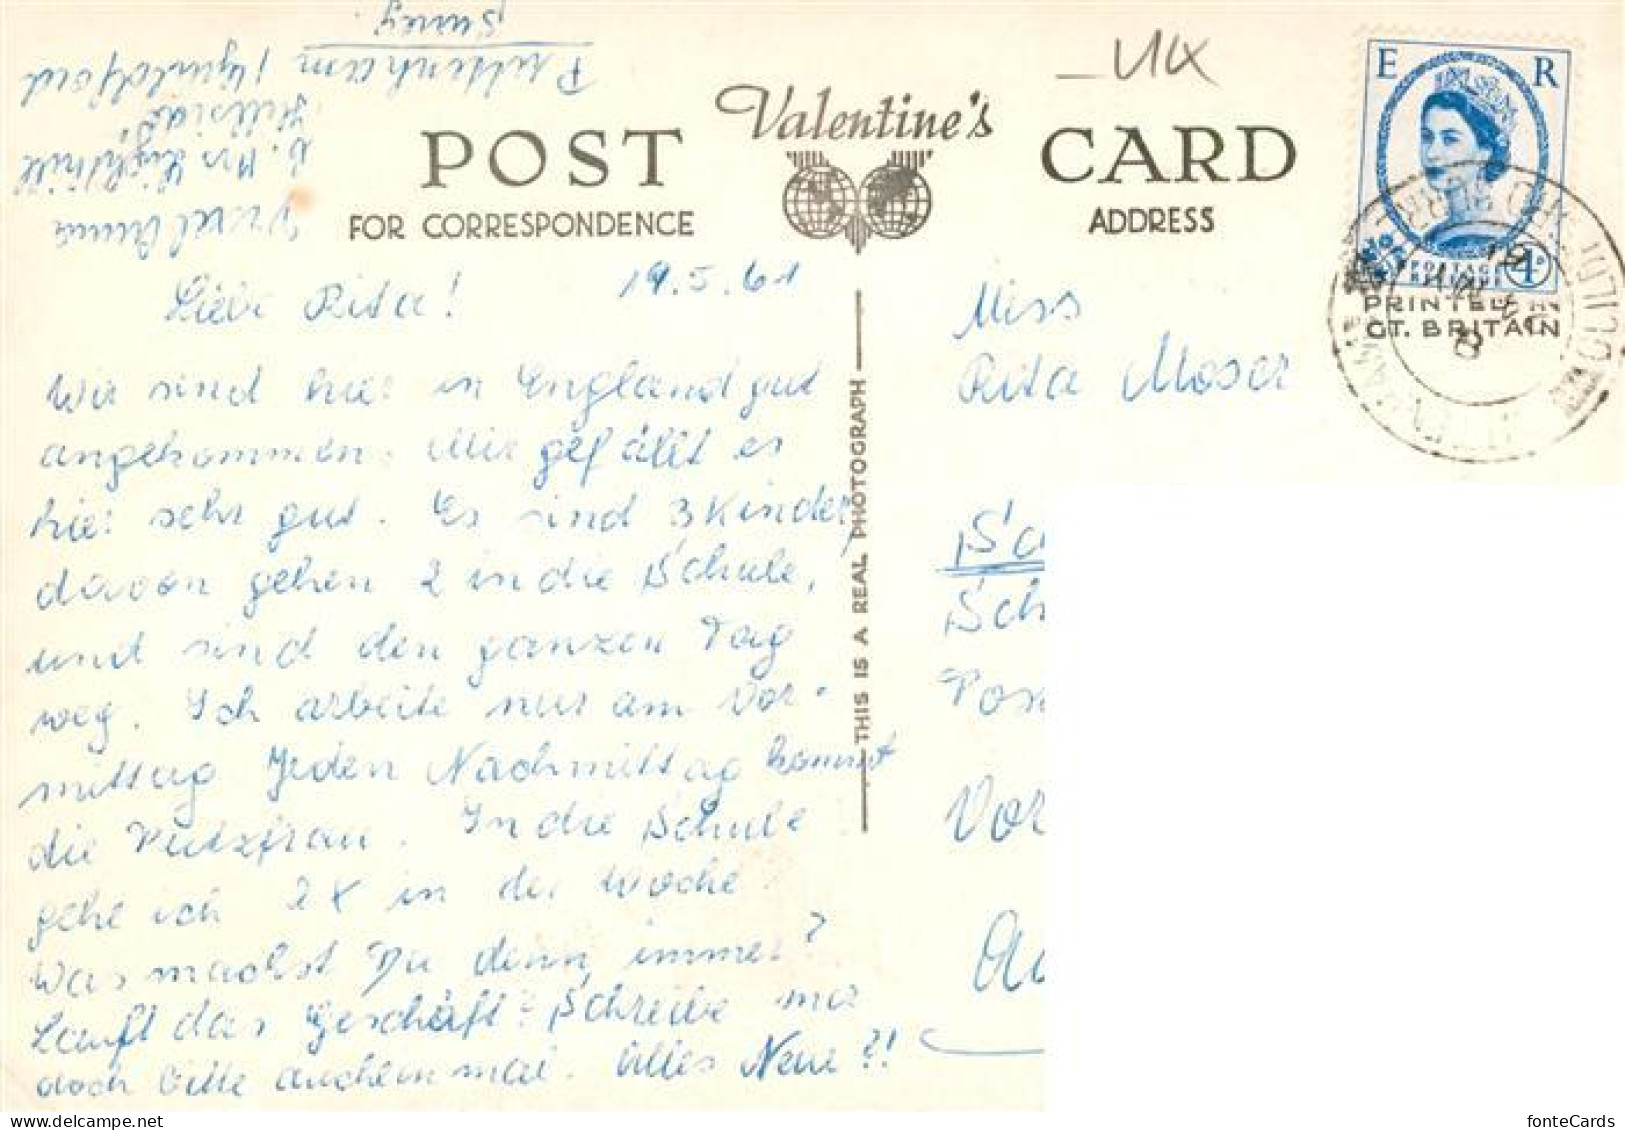 Surrey.
Puttenham / Guildford
Hillside
Lighthill
POST
Valentine's
CARD
UK
E R
FOR CORRESPONDENCE
ADDRESS
POSTAGE REVENUE
PRINTED IN
GT. BRITAIN
19.5.61
Liebe Rita!
Wir sind hier in England gut
angekommen. Mir gefällt es
hier sehr gut. Es sind 3 Kinder,
davon gehen 2 in die Schule,
und sind den ganzen Tag
weg. Ich arbeite nur am Vor-
mittag Jeden Nachmittag kommt
die Putzfrau. In die Schule
gehe ich 2x in der Woche
Was machst Du denn immer?
Lauft das Geschäft? Schreibe mir
doch bitte auch einmal. Alles Neue?!
THIS IS A REAL PHOTOGRAPH
Miss
Rita Moser
Sc
Sch
Pos
Vor
fonteCards